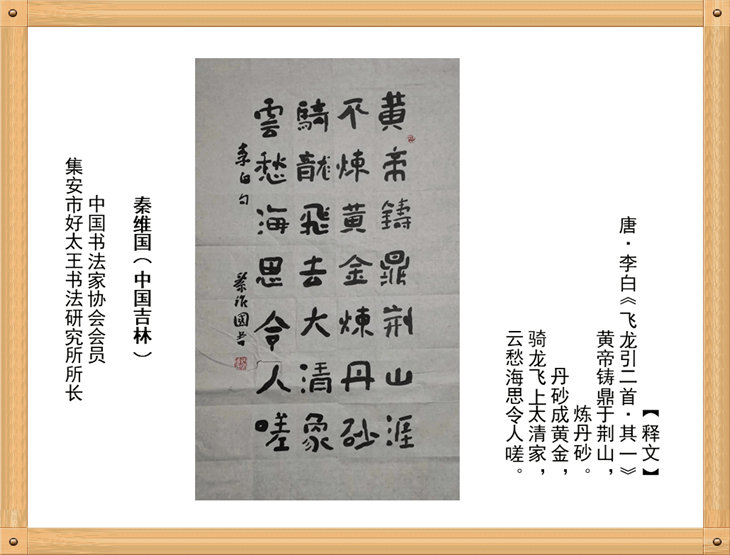 【释文】
唐·李白《飞龙引二首·其一》
黄帝铸鼎于荆山，
炼丹砂。
丹砂成黄金，
骑龙飞上太清家，
云愁海思令人嗟。
黄帝鑄鼎荆山涯
不煉黄金煉丹砂
騎龍飛去大清象
雲愁海思令人嗟
李白句
秦維國書
秦维国（中国吉林）
中国书法家协会会员
集安市好太王书法研究所所长